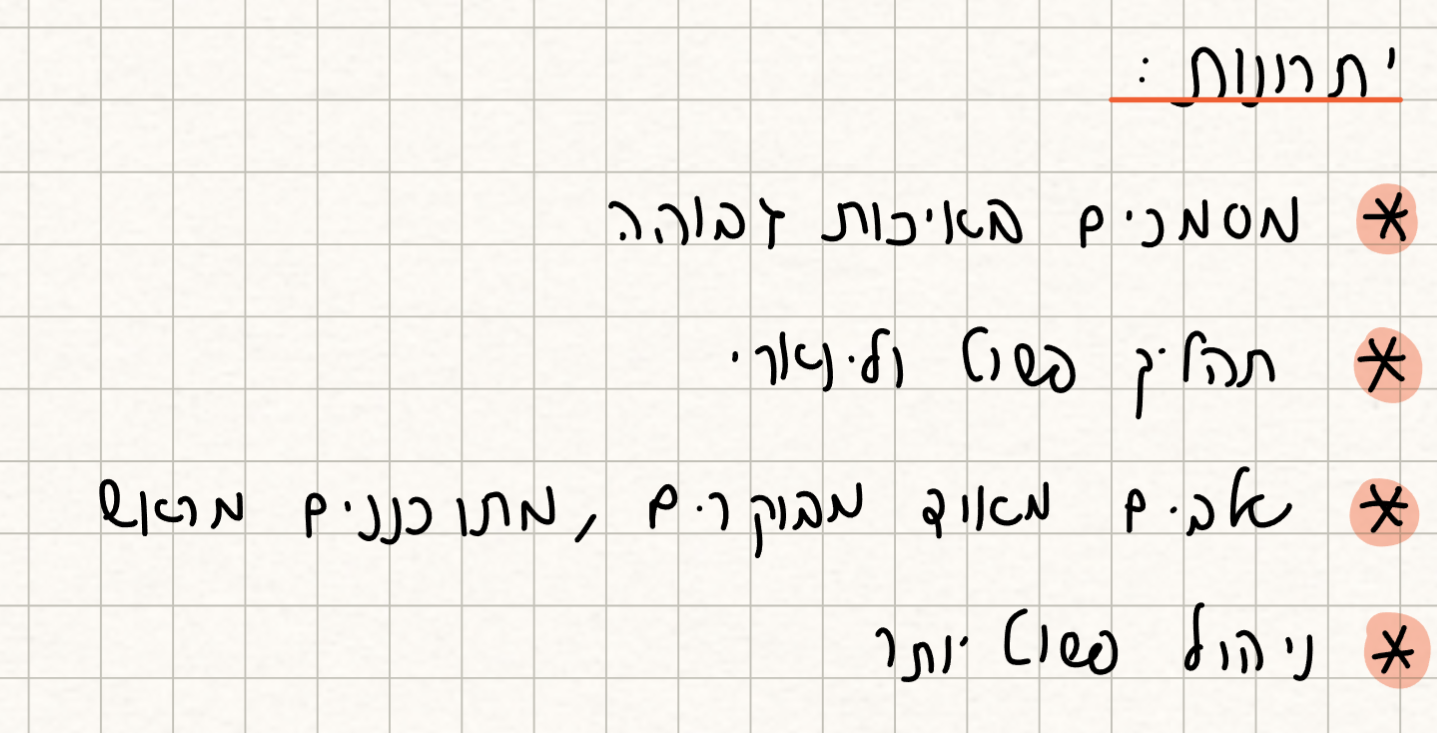 יתרונות :
* מסמכים באיכות גבוהה
* תהליך פשוט ולינארי
* שלבים מאוד מבוקרים, מתוכננים מראש
* ניהול פשוט יותר